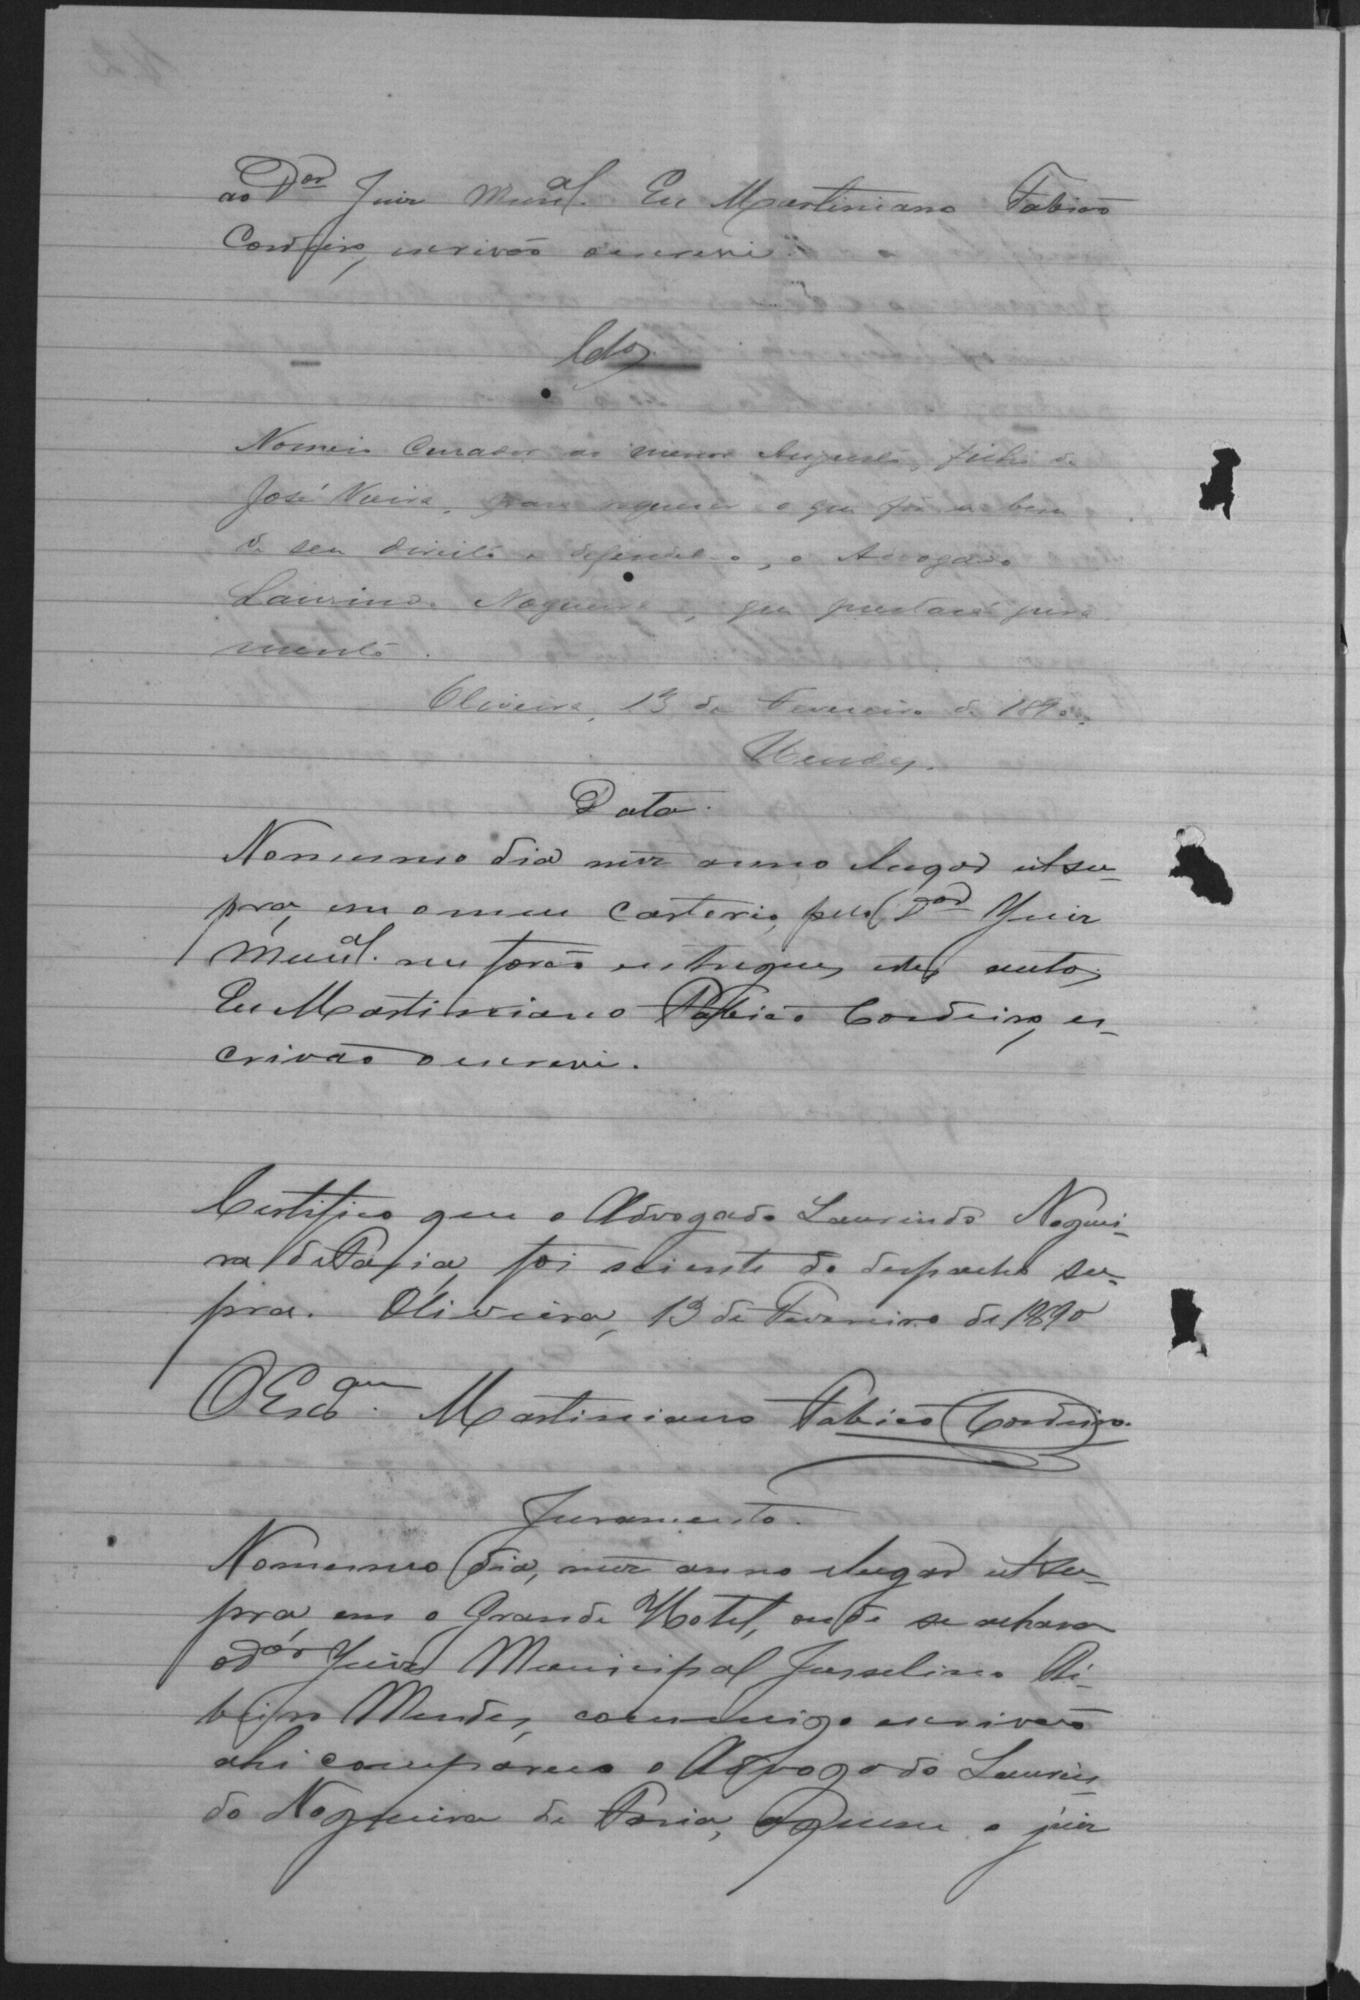 ao Dor Juiz Munal. Eu Martiniano Fabião
Cordeiro, escrivão o escrevi.
Clos.
Nomeio Curador ao menor Augusto, filho de
José Vieira, para requerer o que for a bem
de seu direito e defendel-o, o Advogado
Laurindo Nogueira, que prestará jura
mento.
Oliveira, 13 de Fevereiro de 1890.
Mendes.
Data.
No mesmo dia mez anno e lugar ut su-
pra, em o meu Cartorio, pelo Dor Juiz
Munal. me forão entregues estes autos,
Eu Martiniano Fabião Cordeiro, es-
crivão o escrevi.
Certifico que o Advogado Laurindo Noguei-
ra de Faria, foi sciente do despacho su-
pra. Oliveira, 13 de Fevereiro de 1890
O Escam. Martiniano Fabião Cordeiro.
Juramento.
No mesmo dia, mez anno e lugar ut su-
pra em o Grande Hotel, onde se achava
o dor Juiz Municipal Jusselino Ri-
beiro Mendes, commigo escrivão
ahi compareceo o Advogado Laurin-
do Nogueira de Faria, a quem o juiz